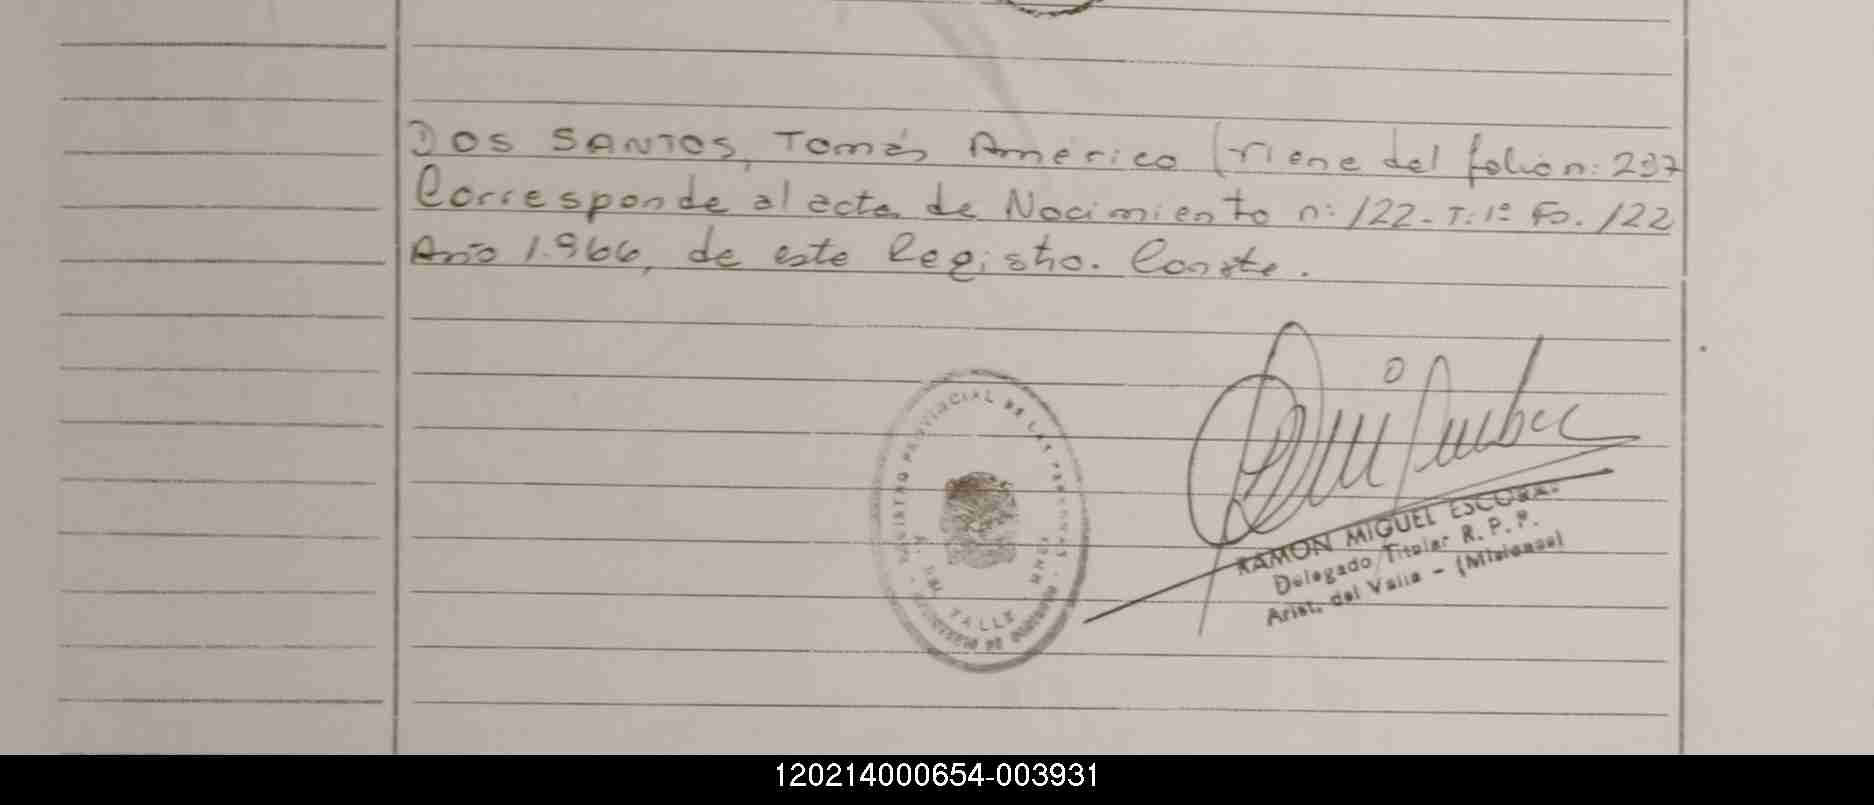 DOS SANTOS, Tomás Américo (Viene del folio n: 297
Corresponde al acta de Nacimiento n: 122- T: 1º Fo. 122
Año 1.966, de este Registro. Conste.
REGISTRO PROVINCIAL DE LAS PERSONAS
A. DEL VALLE
RAMON MIGUEL ESCOBAR
Delegado Titular R. P. P.
Arist. del Valle - (Misiones)
120214000654-003931